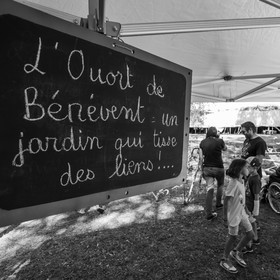 L'Ouort de
Bénévent = un
jardin qui tisse
des liens !...